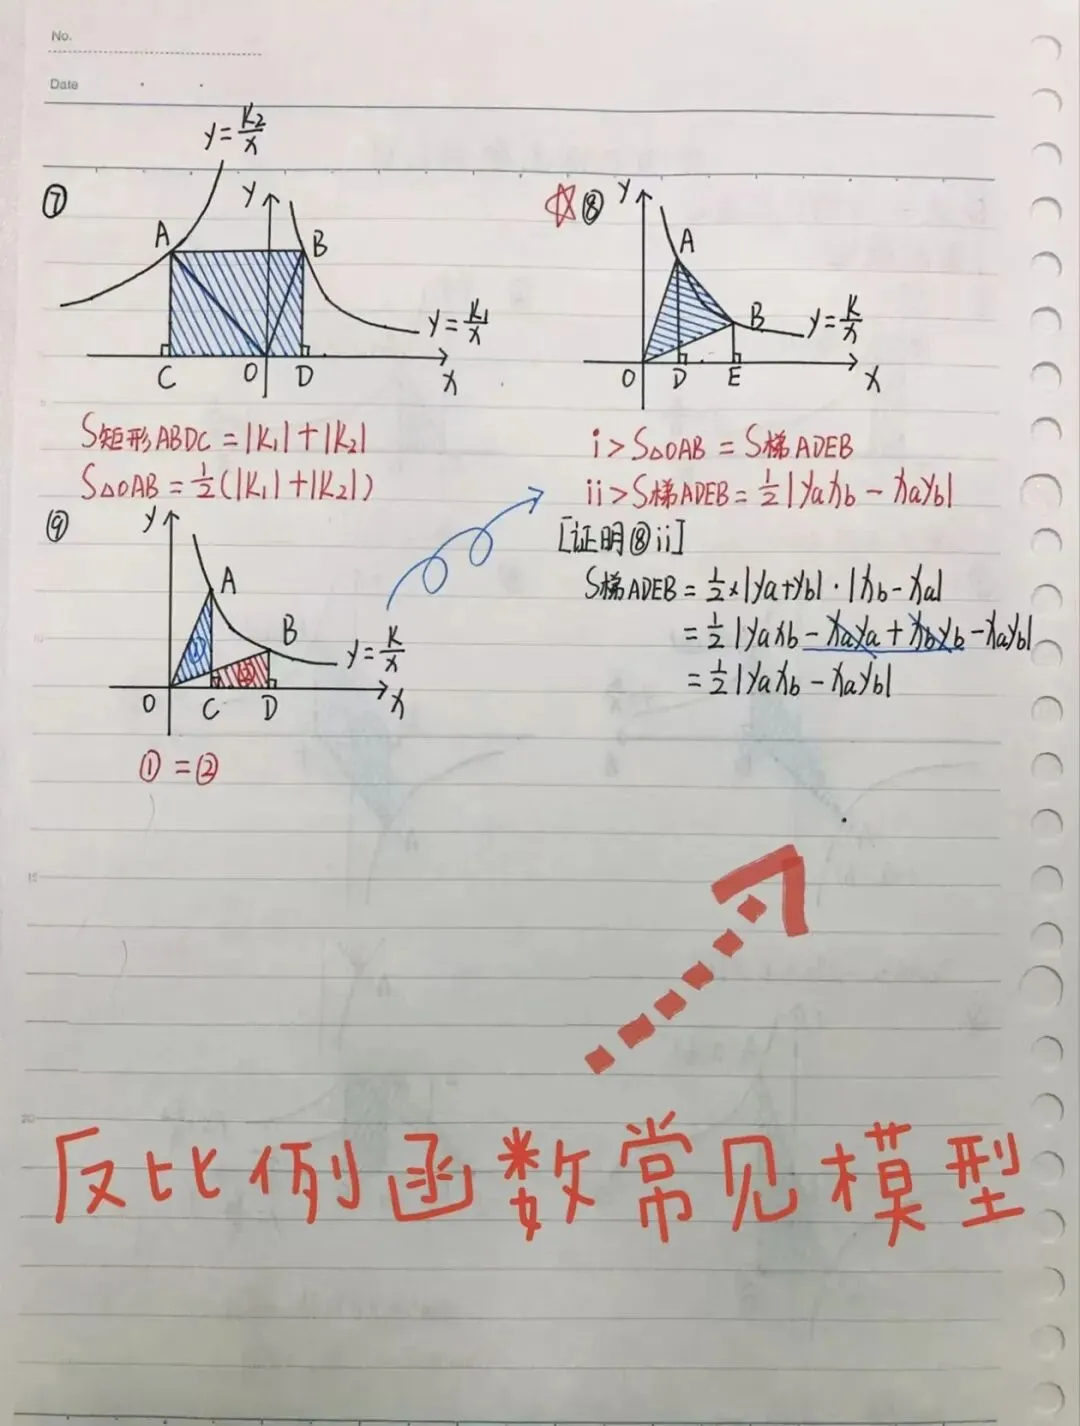 No.
Date
⑦
y=K₂/x
y
A
B
y=K₁/x
C
O
D
x
S矩形ABDC=|K₁|+|K₂|
S△OAB=½(|K₁|+|K₂|)
☆⑧
y
A
B
y=K/x
O
D
E
x
i>S△OAB=S梯ADEB
ii>S梯ADEB=½|yaxb-xayb|
[证明⑧ii]
S梯ADEB=½×|ya+yb|·|xb-xa|
=½|yaxb-xaya+xbyb-xayb|
=½|yaxb-xayb|
⑨
y
A
B
y=K/x
①
②
O
C
D
x
①=②
15
20
反比例函数常见模型